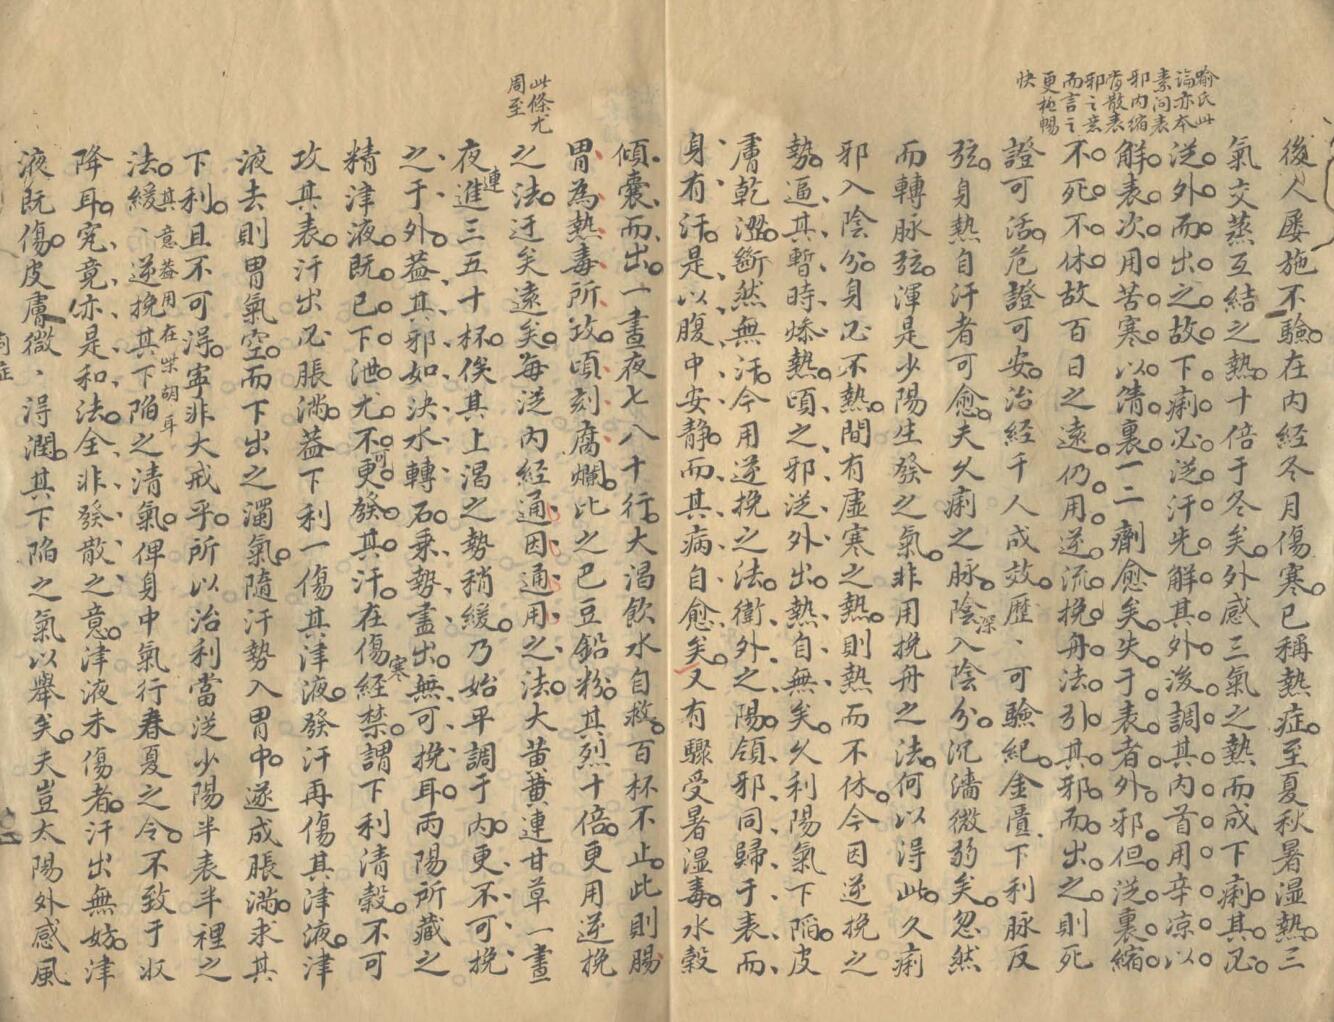 喻氏此
論亦本
素问表
邪内縮
肯散表
邪之意
而言之
更極暢
快
後人屡施不驗在内經冬月傷寒已稱熱症至夏秋暑湿熱三
氣交蒸互結之熱十倍于冬矣外感三氣之熱而成下痢其必
從外而出之故下痢必從汗先解其外後調其内首用辛凉以
解表次用苦寒以清裏一二劑愈矣失于表者外邪但從裏縮
不死不休故百日之遠仍用逆流挽舟法引其邪而出之則死
證可活危證可安治經千人成效歷、可驗紀金匱下利脉反
弦身熱自汗者可愈夫久痢之脉陰深入陰分沉濇微弱矣忽然
而轉脉弦渾是少陽生發之氣非用挽舟之法何以得此久痢
邪入陰分身必不熱間有虛寒之熱則熱而不休今因逆挽之
勢逼其暫時燥熱頃之邪從外出熱自無矣久利陽氣下陷皮
膚乾澀斷然無汗今用逆挽之法衛外之陽領邪同歸于表而
身有汗是以腹中安静而其病自愈矣又有驟受暑湿毒水穀
傾囊而出一晝夜七八十行大渴飲水自救百杯不止此則腸
胃為熱毒所攻頃刻腐爛比之巴豆鉛粉其烈十倍更用逆挽
此條尤
周至
之法迂矣遠矣每從内經通因通用之法大黄黄連甘草一晝
夜連進三五十杯俟其上渴之勢稍緩乃始平調于内更不可挽
之于外葢其邪如决水轉石乘勢盡出無可挽耳两陽所藏之
精津液既已下泄尤不可更發其汗在傷寒經禁謂下利清穀不可
攻其表汗出必脹滿葢下利一傷其津液發汗再傷其津液津
液去則胃氣空而下出之濁氣隨汗勢入胃中遂成脹滿求其
下利且不可得寧非大戒乎所以治利當從少陽半表半裡之
法緩、而逆挽其下陷之清氣俾身中氣行春夏之令不致于收
其意葢用在柴胡耳
降耳究竟亦是和法全非發散之意津液未傷者汗出無妨津
液既傷皮膚微、淂潤其下陷之氣以舉矣夫豈太陽外感風